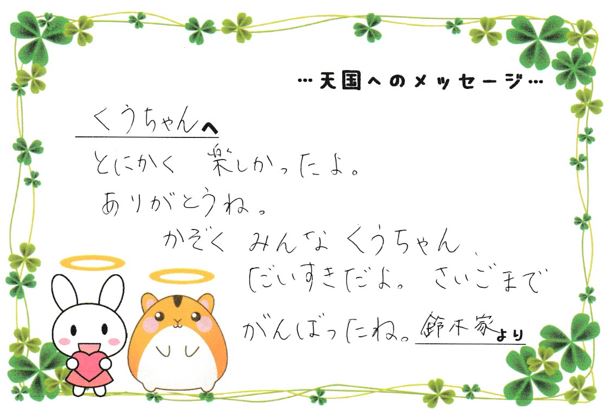 …天国へのメッセージ…
くうちゃんへ
とにかく 楽しかったよ。
ありがとうね。
かぞく みんな くうちゃん、
だいすきだよ。 さいごまで
がんばったね。鈴木家より